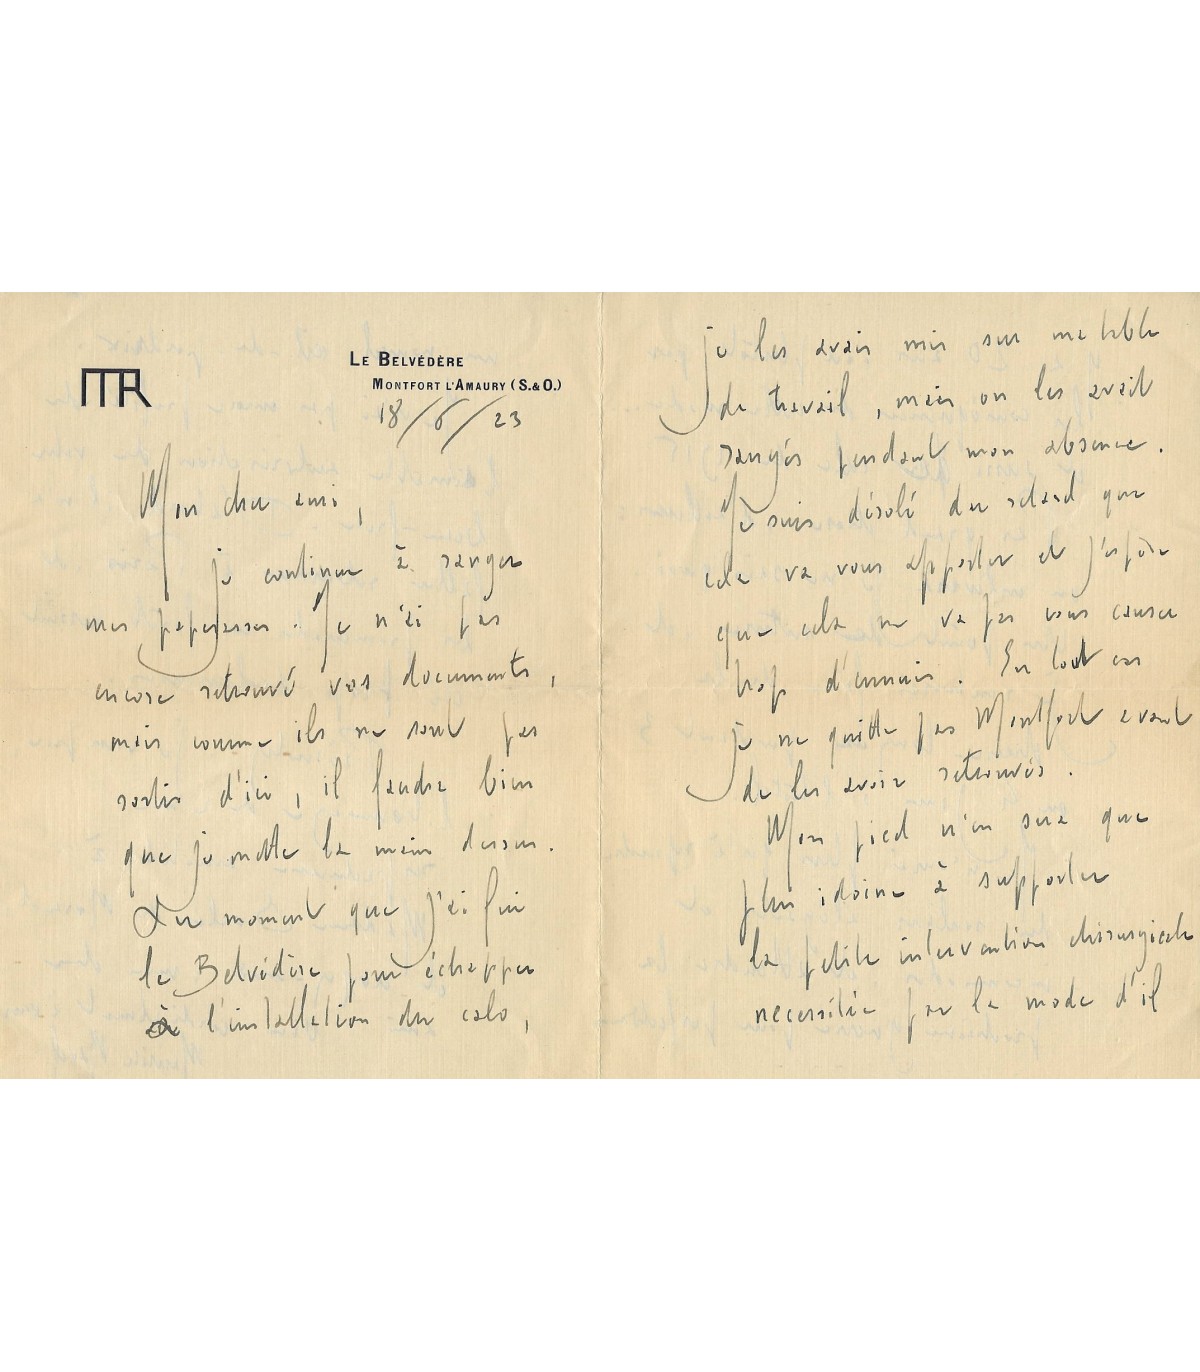 MR
LE BELVÉDÈRE
MONTFORT L'AMAURY (S. & O.)
18/6/23
Mon cher ami,
je continue à ranger
mes paperasses. Je n'ai pas
encore retrouvé vos documents,
mais comme ils ne sont pas
sortis d'ici, il faudra bien
que je mette la main dessus.
Au moment que j'ai fui
le Belvédère pour échapper
à l'installation du calo,
je les avais mis sur ma table
de travail, mais on les avait
rangés pendant mon absence.
Je suis désolé du retard que
cela va vous apporter et j'espère
que cela ne va pas vous causer
trop d'ennuis. En tout cas
je ne quitte pas Montfort avant
de les avoir retrouvés.
Mon pied n'en sera que
plus idoine à supporter
la petite intervention chirurgicale
necessitée par la mode d'il